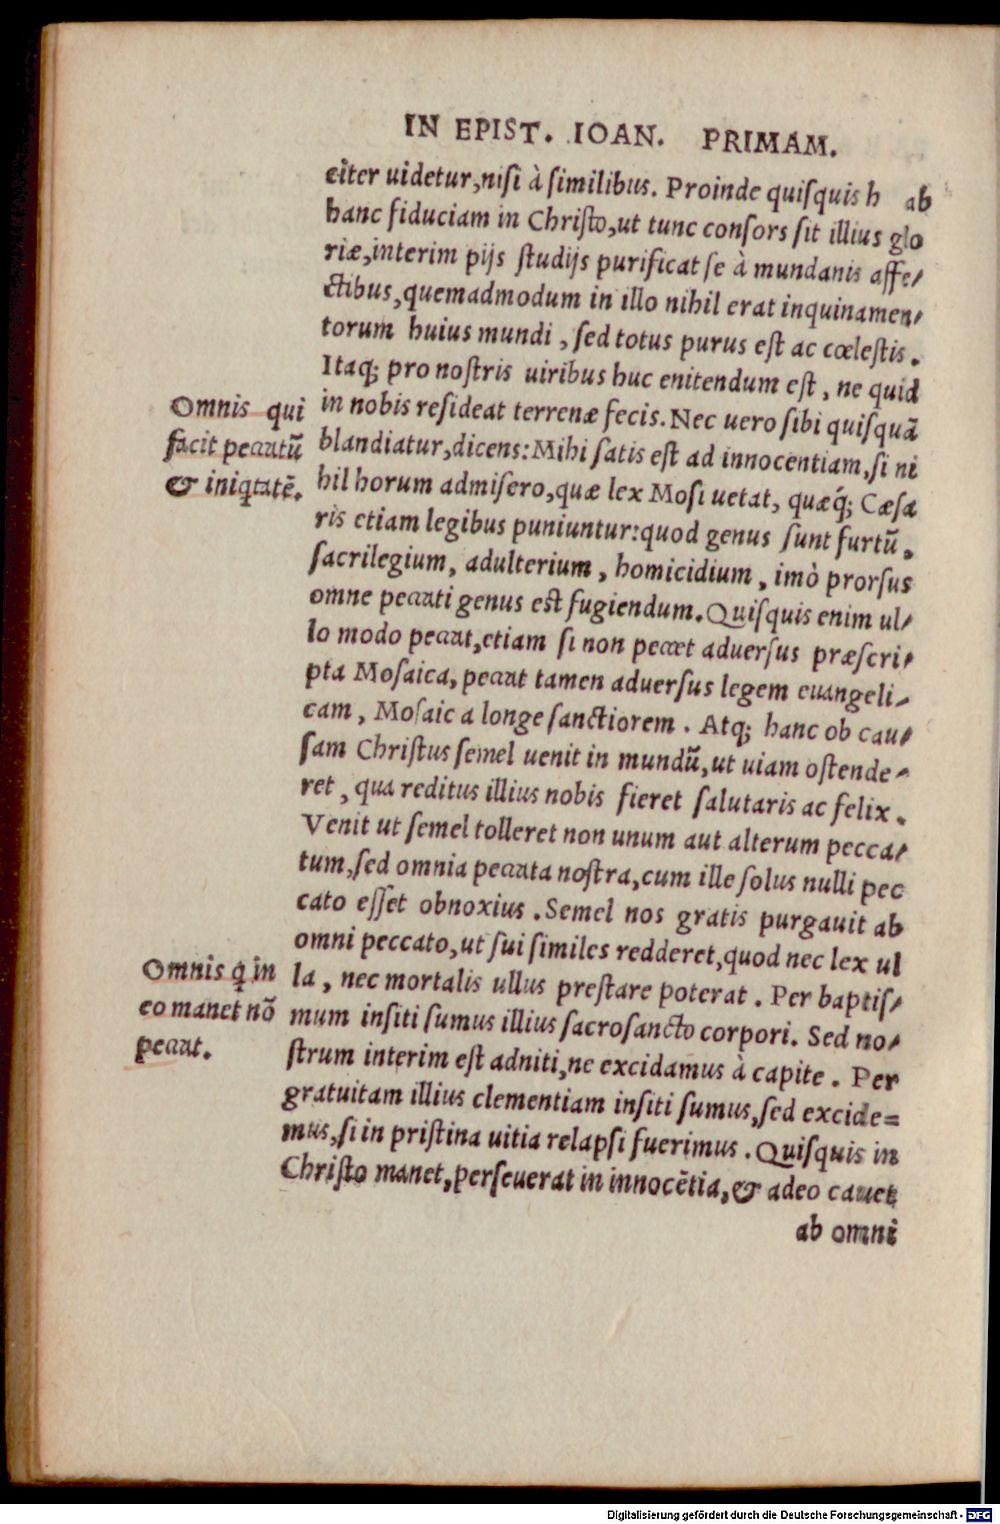 IN EPIST. IOAN. PRIMAM.
citer uidetur, nisi à similibus. Proinde quisquis h ab
hanc fiduciam in Christo, ut tunc consors sit illius glo
riæ, interim pijs studijs purificat se à mundanis affe/
ctibus, quemadmodum in illo nihil erat inquinamen/
torum huius mundi, sed totus purus est ac cœlestis.
Itaq; pro nostris uiribus huc enitendum est, ne quid
in nobis resideat terrenæ fecis. Nec uero sibi quisquā
blandiatur, dicens: Mihi satis est ad innocentiam, si ni
hil horum admisero, quæ lex Mosi uetat, quæq́; Cæsa
ris etiam legibus puniuntur: quod genus sunt furtū,
sacrilegium, adulterium, homicidium, imò prorsus
omne peccati genus est fugiendum. Quisquis enim ul/
lo modo peccat, etiam si non peccet aduersus præscri/
pta Mosaica, peccat tamen aduersus legem euangeli/
cam, Mosaic a longe sanctiorem. Atq; hanc ob cau/
sam Christus semel uenit in mundū, ut uiam ostende/
ret, qua reditus illius nobis fieret salutaris ac felix.
Venit ut semel tolleret non unum aut alterum pecca/
tum, sed omnia peccata nostra, cum ille solus nulli pec
cato esset obnoxius. Semel nos gratis purgauit ab
omni peccato, ut sui similes redderet, quod nec lex ul
la, nec mortalis ullus prestare poterat. Per baptis/
mum insiti sumus illius sacrosancto corpori. Sed no/
strum interim est adniti, ne excidamus à capite. Per
gratuitam illius clementiam insiti sumus, sed excide=
mus, si in pristina uitia relapsi fuerimus. Quisquis in
Christo manet, perseuerat in innocētia, & adeo cauet
ab omni
Omnis qui
facit peccatū
& iniq̇tatē.
Omnis q̇ in
eo manet nō
peccat.
Digitalisierung gefördert durch die Deutsche Forschungsgemeinschaft - DFG